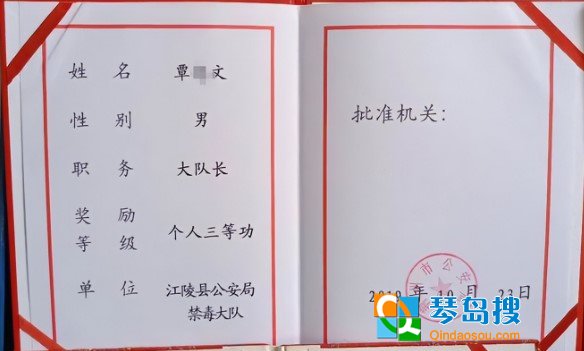 姓 名 覃 文
性 别 男
职 务 大队长
奖 励
等 级 个人三等功
单 位 江陵县公安局
禁毒大队
批准机关：
州市公安
2019 年 10 月 23日
琴岛搜
Qindaosou.com